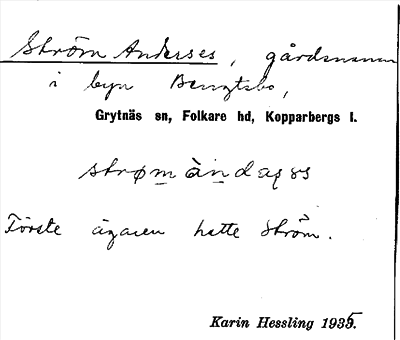 Ström Anderses, gårdsnamn
i byn Bengtsbo,
Grytnäs sn, Folkare hd, Kopparbergs l.
Förste ägaren hette Ström.
Karin Hessling 1935.